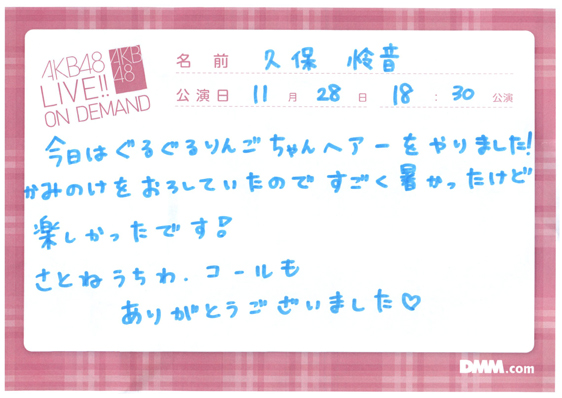 AKB48
LIVE!!
ON DEMAND
AKB
48
名前 久保怜音
公演日 11月28日 18:30公演
今日はぐるぐるりんごちゃんヘアーをやりました!
かみのけをおろしていたのですごく暑かったけど
楽しかったです!
さとねうちわ.コールも
ありがとうございました♡
DMM.com